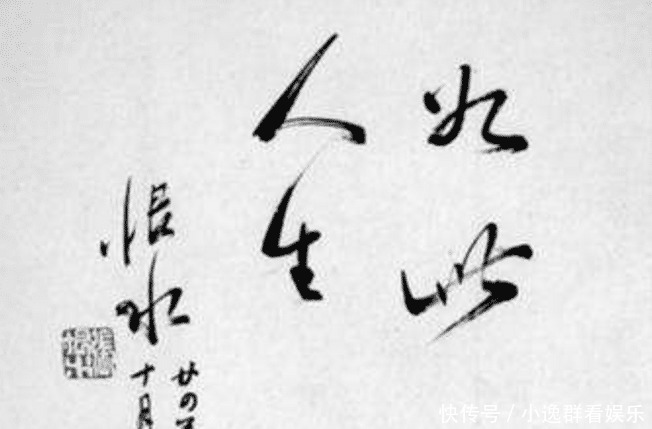 如此
人生
恨水
廿の
十月
快传号 / 小逸群看娱乐